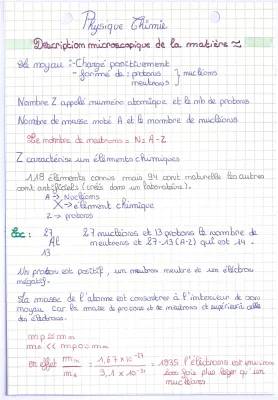 Physique Chimie
Description microscopique de la matière
Le noyau :- Chargé positivement
- formé de : protons } nucléons
neutrons
Nombre Z appelé numéro atomique et le nb de protons
Nombre de masse noté A et le nombre de nucléons
Le nombre de neutrons = N= A-Z
Z caractérise un éléments chimiques
118 éléments connus mais 94 sont naturelle les autres
sont artificiels (créés dans un laboratoire).
A → Nucléons
X → élément chimique
Z → protons
Exc : 27 27 nucléaires et 13 protons le nombre de
Al neutrons et 27-13 (A-Z) qui est 14.
13
Un proton est positif, un neutron neutre et un électron
négatif.
La masse de l'atome est concentrer à l'intérieur de son
noyau car la masse de protons et de neutrons et supérieur à celle
des électrons.
mp ≈ mn
me << mp ≈ mn
En effet mn = 1,67 x 10⁻²⁷ = 1935 l'électrons est environ
me 9,1 x 10⁻³¹ 2000 fois plus léger qu'un
nucléaires